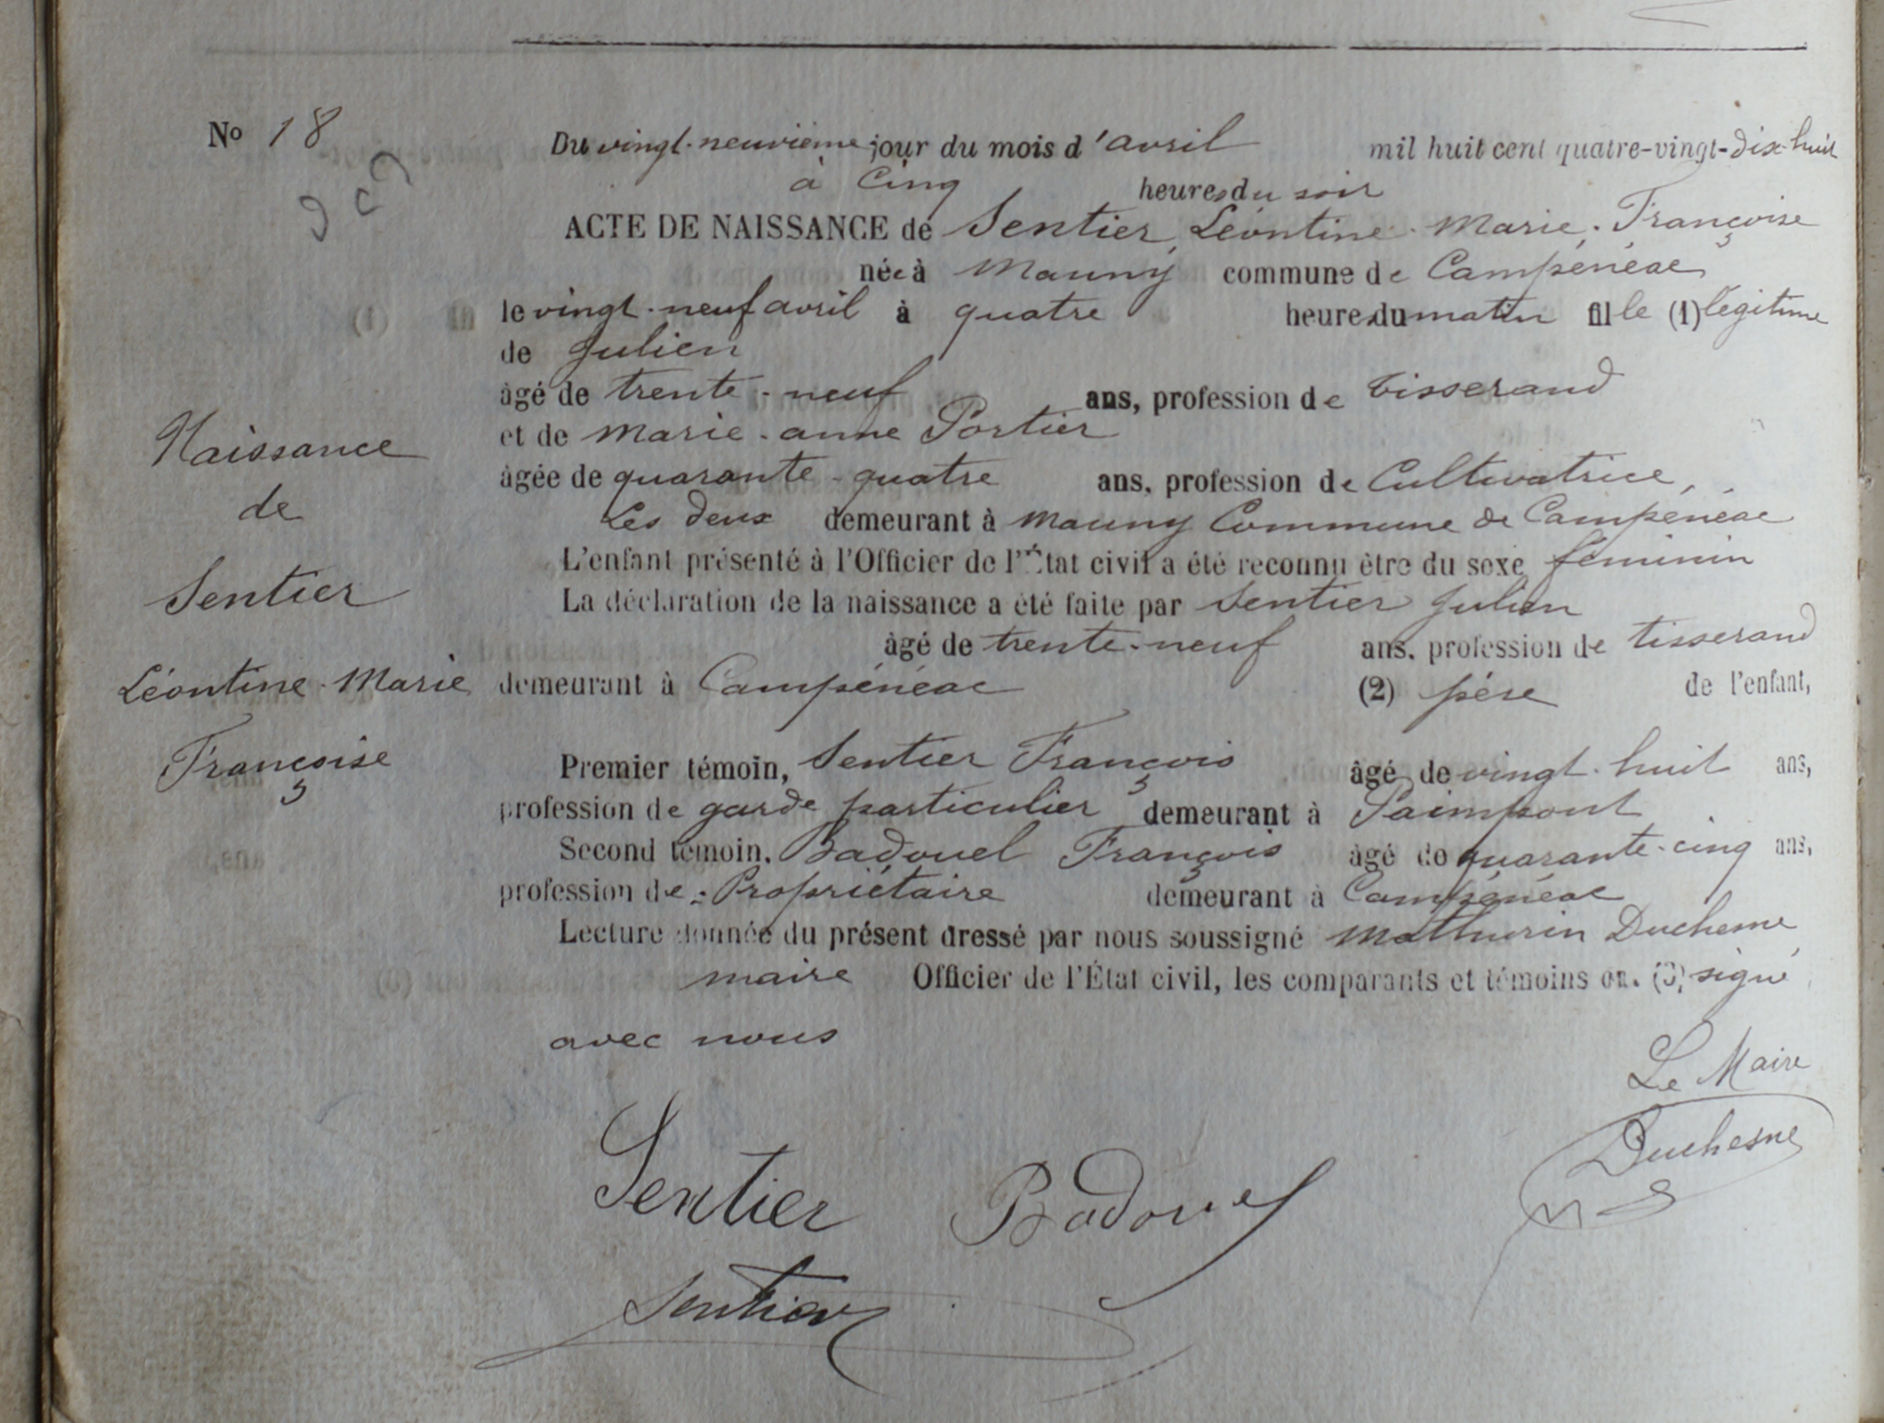 No 18
Du vingt-neuvième jour du mois d'avril mil huit cent quatre-vingt-dix-huit
à Cinq heures du soir
ACTE DE NAISSANCE de Sentier, Léontine-Marie-Françoise
née à Mauny commune de Campénéac
le vingt-neuf avril à quatre heure du matin fille (1) légitime
de Julien
âgé de trente-neuf ans, profession de tisserand
et de Marie-anne Portier
âgée de quarante-quatre ans, profession de Cultivatrice,
Les deux demeurant à Mauny Commune de Campénéac
L'enfant présenté à l'Officier de l'État civil a été reconnu être du sexe féminin
La déclaration de la naissance a été faite par Sentier Julien
âgé de trente-neuf ans, profession de tisserand
demeurant à Campénéac (2) père de l'enfant,
Premier témoin, Sentier François âgé de vingt-huit ans,
profession de garde particulier demeurant à Paimpont
Second témoin, Badouel François âgé de quarante-cinq ans,
profession de : Propriétaire demeurant à Campénéac
Lecture donnée du présent dressé par nous soussigné Mathurin Duchesne
maire Officier de l'État civil, les comparants et témoins on. (3) signé
avec nous
Naissance
de
Sentier
Léontine-Marie
Françoise
Le Maire
Duchesne
Sentier Badouel
Sentier